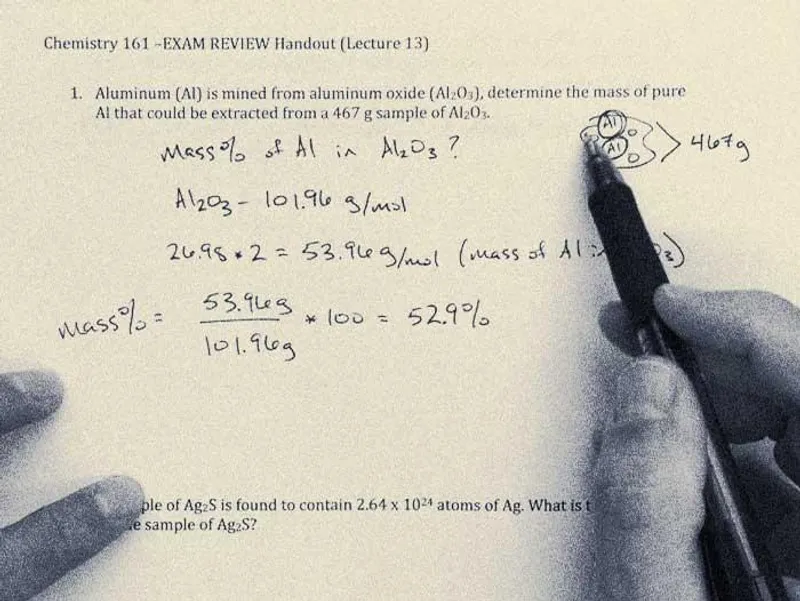 Chemistry 161 –EXAM REVIEW Handout (Lecture 13)
1. Aluminum (Al) is mined from aluminum oxide (Al₂O₃), determine the mass of pure
Al that could be extracted from a 467 g sample of Al₂O₃.
Al
Al
467g
Mass% of Al in Al₂O₃?
Al₂O₃ - 101.96 g/mol
26.98 * 2 = 53.96 g/mol (mass of Al in O₃)
mass% = 53.96g / 101.96g * 100 = 52.9%
ple of Ag₂S is found to contain 2.64 x 10²⁴ atoms of Ag. What is t
e sample of Ag₂S?